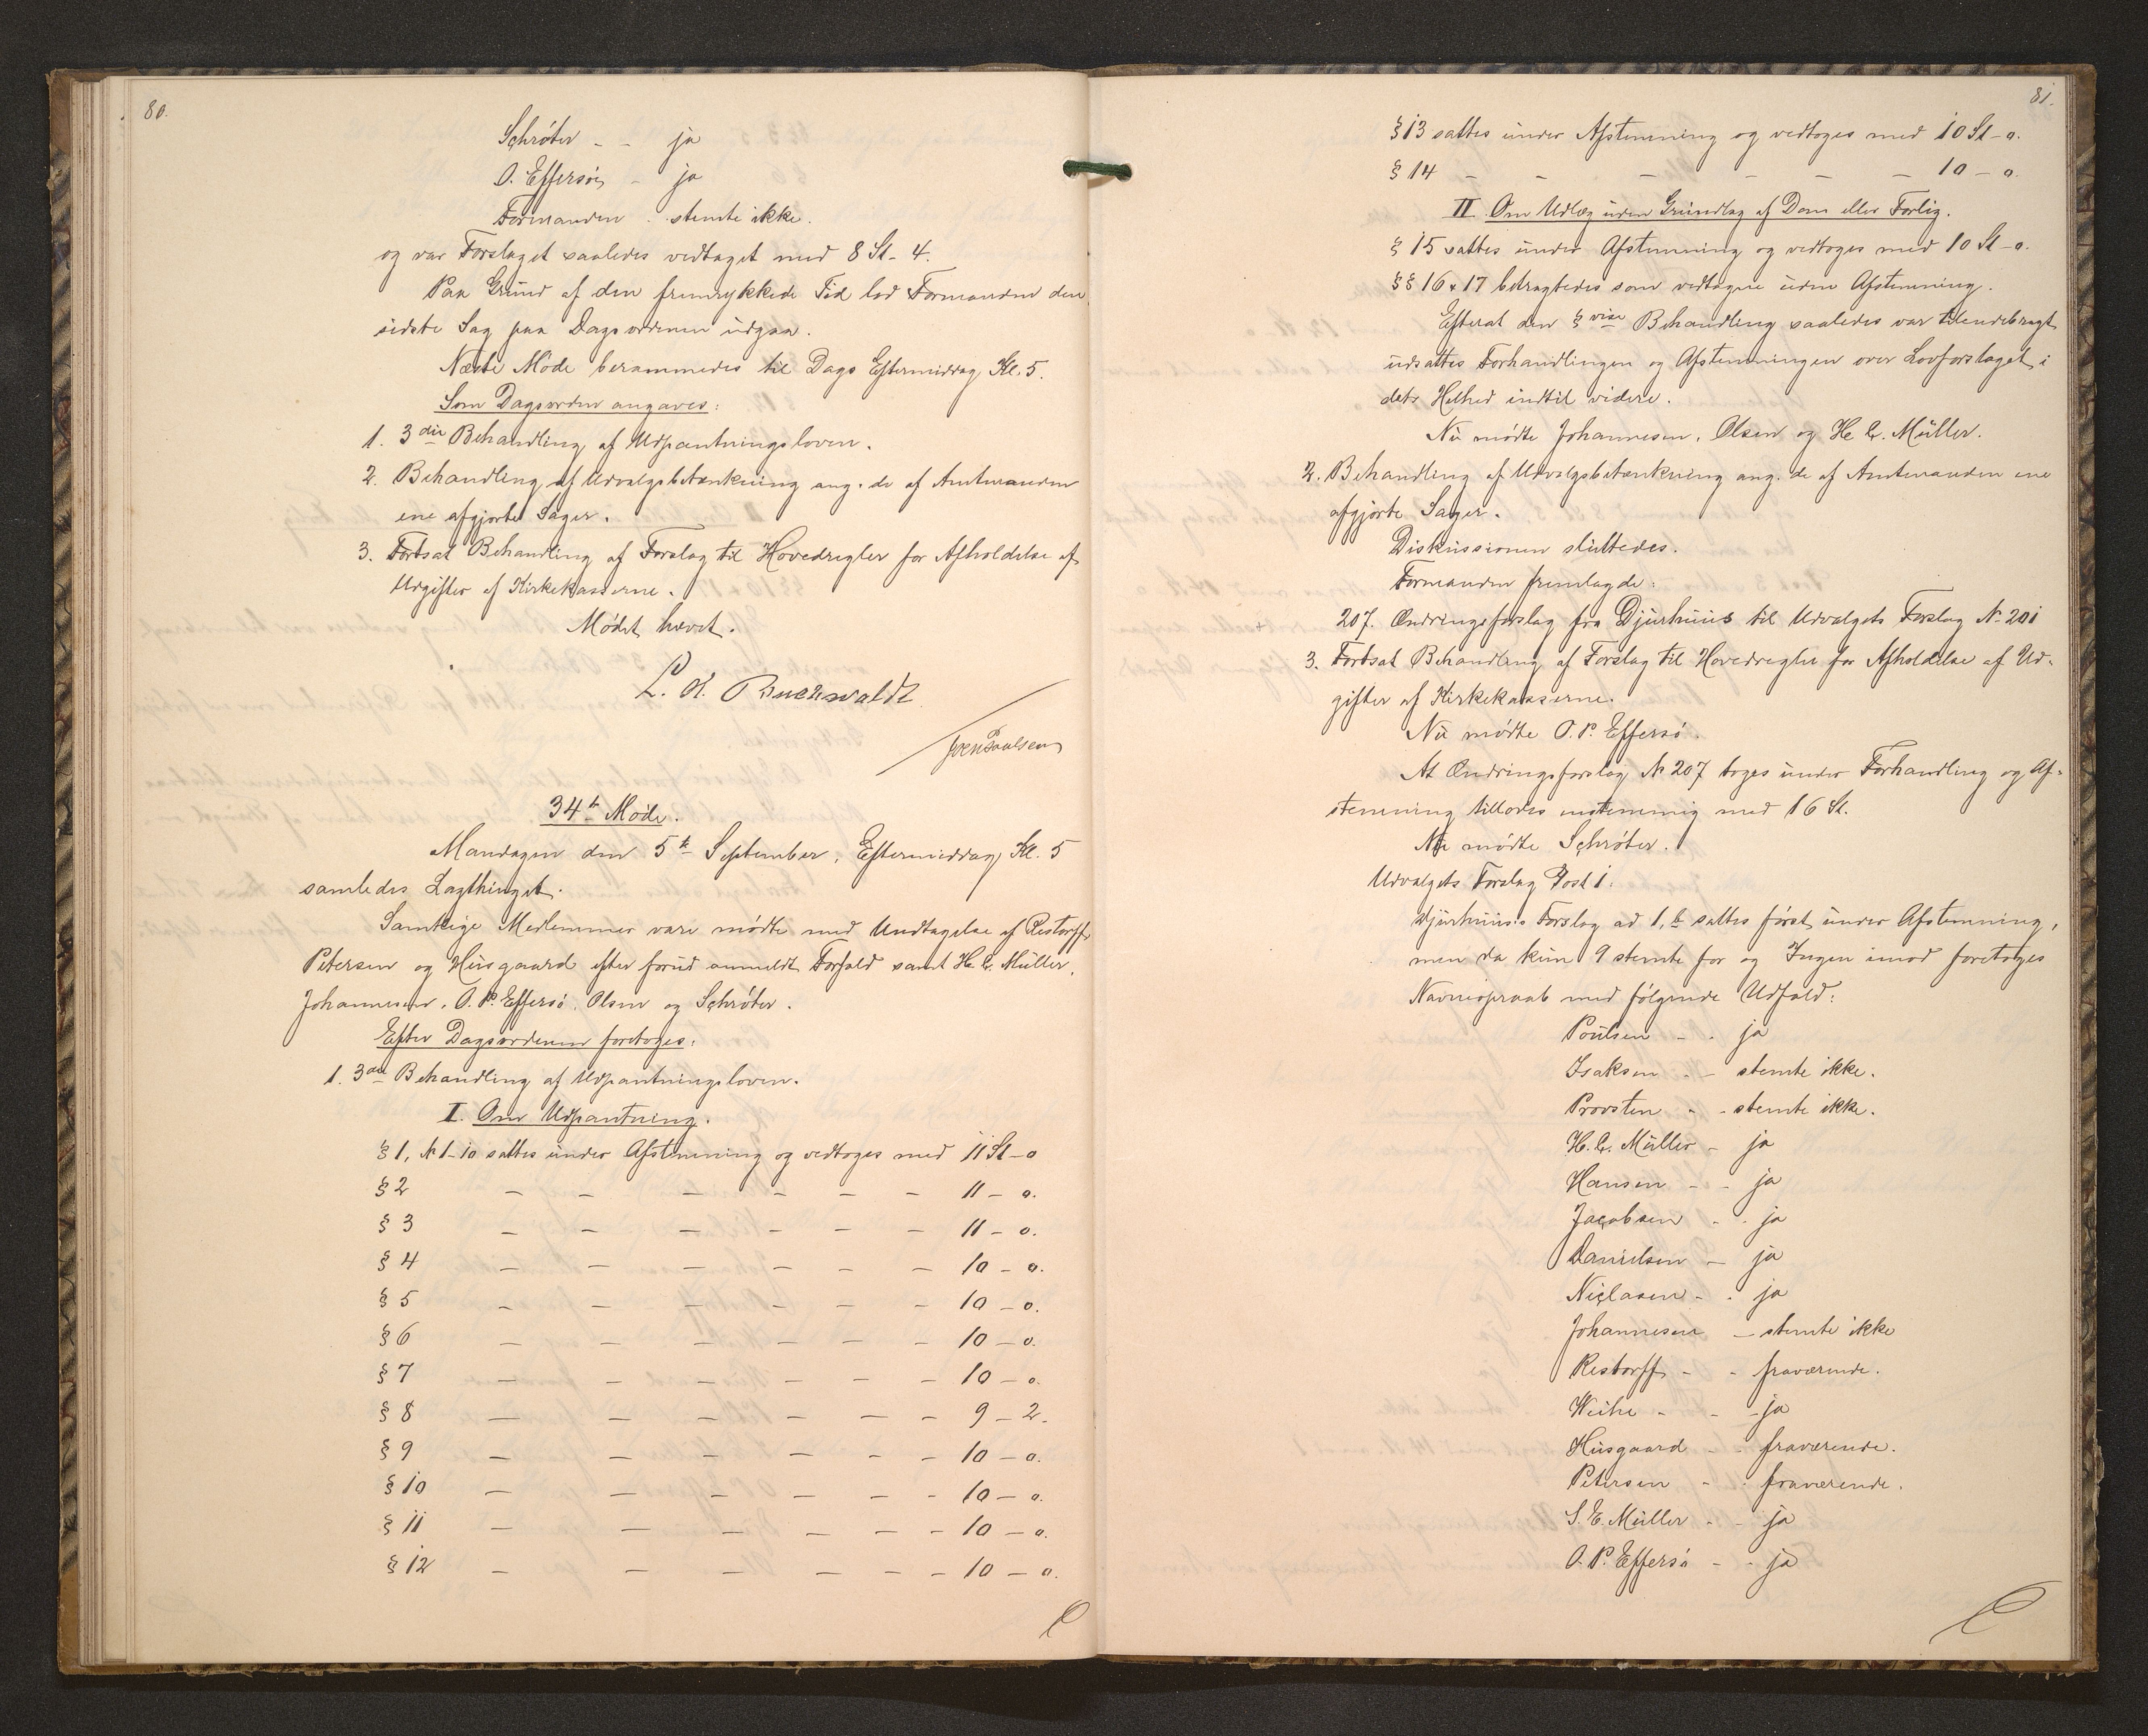 80.
Schrøter - - ja
O. Effersøe - ja
Formanden - stemte ikke.
og var Forslaget saaledes vedtaget med 8 St - 4.
Paa Grund af den fremrykkede Tid lod Formanden den
sidste Sag paa Dagsordenen udgaa.
Næste Møde berammedes til Dags Eftermiddag Kl. 5.
Som Dagsorden angaves:
1. 3die Behandling af Udpantningsloven.
2. Behandling af Udvalgsbetænkning ang. de af Amtmanden
ene afgjorte Sager.
3. Fortsat Behandling af Forslag til Hovedregler for Afholdelse af
Udgifter af Kirkekasserne.
Mødet hævet.
Buchwaldt
Poulsen
34te Møde.
Mandagen den 5te September, Eftermiddag Kl. 5
samledes Lagthinget.
Samtlige Medlemmer vare mødte med Undtagelse af Restorff,
Petersen og Husgaard efter forud anmeldt Forfald samt H. C. Müller,
Johannesen, O. P. Effersø, Olsen og Schrøter.
Efter Dagsordenen foretoges:
1. 3die Behandling af Udpantningsloven.
I. Om Udpantning.
§ 1, № 1-10 sattes under Afstemning og vedtoges med 11 St - 0
§ 2 - - - - - - 11 - 0.
§ 3 - - - - - - 11 - 0.
§ 4 - - - - - - 10 - 0.
§ 5 - - - - - - 10 - 0.
§ 6 - - - - - - 10 - 0.
§ 7 - - - - - - 10 - 0.
§ 8 - - - - - - 9 - 2.
§ 9 - - - - - - 10 - 0.
§ 10 - - - - - - 10 - 0.
§ 11 - - - - - - 10 - 0.
§ 12 - - - - - - 10 - 0.
81.
§ 13 sattes under Afstemning og vedtoges med 10 St - 0.
§ 14 - - - - - - 10 - 0.
II. Om Udlæg uden Grundlag af Dom eller Forlig.
§ 15 sattes under Afstemning og vedtoges med 10 St - 0.
§§ 16 & 17 betragtedes som vedtagne uden Afstemning.
Efterat den § vise Behandling saaledes var tilendebragt
udsattes Forhandlingen og Afstemningen over Lovforslaget i
dets Helhed indtil videre.
Nu mødte Johannesen, Olsen og H. C. Müller.
2. Behandling af Udvalgsbetænkning ang. de af Amtmanden ene
afgjorte Sager.
Diskussionen sluttedes.
Formanden fremlagde:
207. Ændringsforslag fra Djurhuus til Udvalgets Forslag № 201
3. Fortsat Behandling af Forslag til Hovedregler for Afholdelse af Ud-
gifter af Kirkekasserne.
Nu mødte O. P. Effersø.
At Ændringsforslag № 207 toges under Forhandling og Af-
stemning tillodes enstemmig med 16 St.
Nu mødte Schrøter.
Udvalgets Forslag Post 1.
Djurhuus's Forslag ad 1, b sattes først under Afstemning,
men da kun 9 stemte for og Ingen imod foretoges
Navneopraab med følgende Udfald:
Poulsen - - ja
Isaksen - - stemte ikke.
Provsten - - stemte ikke.
H. C. Müller - ja
Hansen - - ja
Jacobsen - - ja
Danielsen - ja
Niclasen - - ja
Johannesen - stemte ikke
Restorff - - fraværende.
Weihe - - - ja
Husgaard - - fraværende.
Petersen - - fraværende.
S. E. Müller - - ja
O. P. Effersø - - ja